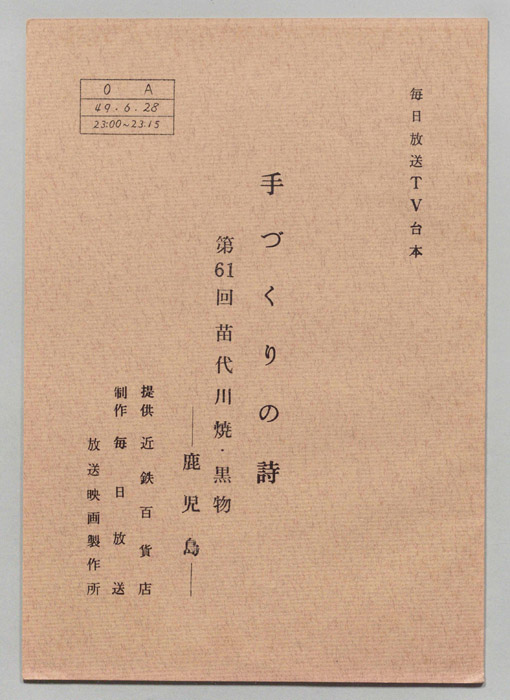 毎日放送TV台本
手づくりの詩
第61回 苗代川焼・黒物
―鹿児島―
提供 近鉄百貨店
制作 毎日放送
放送映画製作所
O A
49.6.28
23:00~23:15